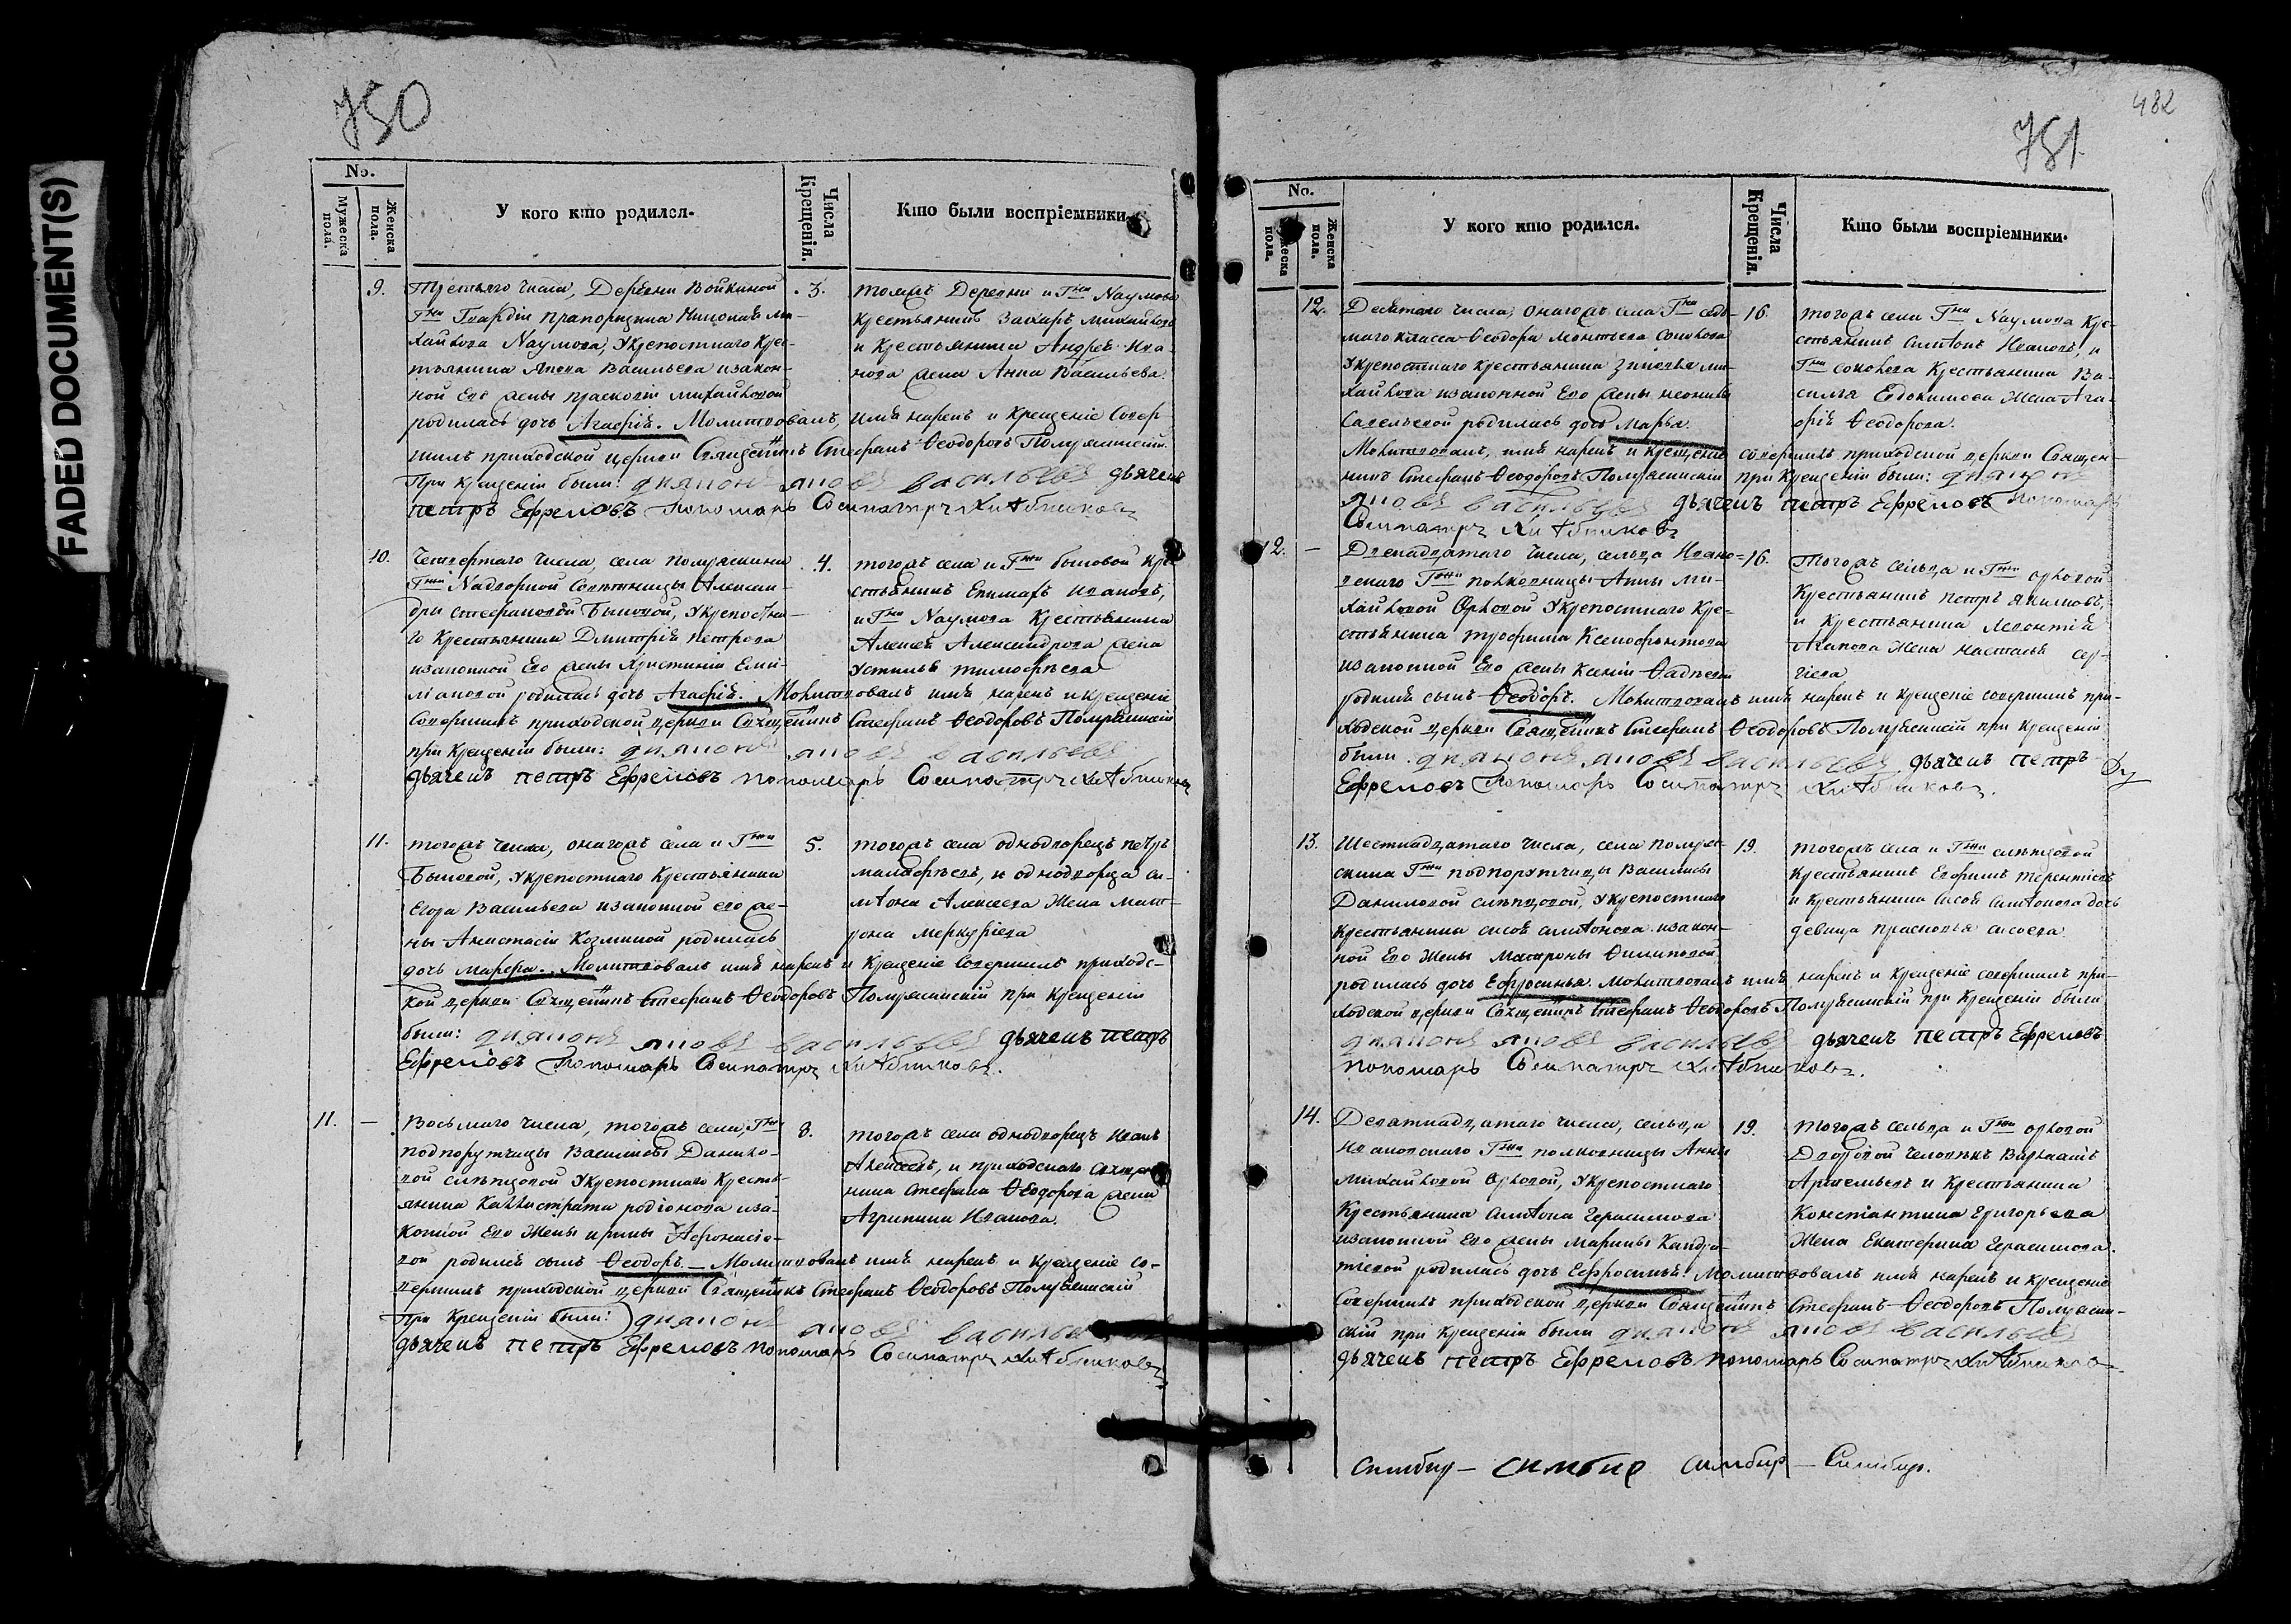 FADED DOCUMENT(S)
750
No.
Мужеска пола.
Женска пола.
У кого кто родился.
Числа Крещенія.
Кто были воспріемники.
9.
Третьяго числа, Деревни Войкиной
Гвардіи прапорщика Николая Ми-
хайлова Наумова, Укрепостнаго Крес-
тьянина Якова Васильева изакон-
ной Его жены Прасковіи Михайловой
родилась дочь Агафія. Молитвовалъ, имя нарекъ и Крещеніе Совер-
шилъ приходской церкви Священникъ Стефанъ Ѳеодоровъ Полуяшинскій
При Крещеніи были: диаконъ яковъ васильевъ дьячекъ
петръ Ефремовъ Пономарь Сосипатръ
3.
тойжъ Деревни и Гна Наумова
Крестьянинъ Захаръ Михайловъ
и Крестьянина Андрея Ива-
нова жена Анна Васильева.
10.
Четвертаго числа, села
Гжи Надворной Советницы Алексан-
дры Стефановой Быковой, Укрепостна-
го Крестьянина Дмитрія Петрова
изаконной Его жены Христиніи Еми-
ліановой родилась дочь Агафія. Молитвовалъ имя нарекъ и крещеніе
Совершилъ приходской церкви Священникъ Стефанъ Ѳеодоровъ
при Крещеніи были: диаконъ яковъ васильевъ
дьячекъ петръ Ефремовъ пономарь Сосипатръ
4.
тогожъ села и Гжи Быковой Кре-
стьянинъ Ивановъ,
и Гна Наумова Крестьянина
Алексея Александрова жена
Устинья Тимофѣева
11.
тогожъ числа, оногожъ села и Гжи
Быковой, Укрепостнаго Крестьянина
Егора Васильева изаконной его же-
ны Анастасіи Козминой родилась
дочь Марфа. Молитвовалъ имя нарекъ и Крещеніе Совершилъ приходс-
кой церкви Священникъ Стефанъ Ѳеодоровъ при Крещеніи
были: диаконъ яковъ васильевъ дьячекъ петръ
Ефремовъ Пономарь Сосипатръ
5.
тогожъ села однодворецъ Петръ
и однодворца
Алексеева Жена Мат-
рона Меркурьева
11. —
Восьмаго числа, тогожъ села, Гжи
подпорутчицы Василисы Данило-
вой Слепцовой Укрепостнаго Кресть-
янина Каллистрата Родіонова иза-
конной Его Жены Ирины Афонасіе-
вой родился сынъ Ѳеодоръ — Молитвовалъ имя нарекъ и крещеніе со-
вершилъ приходской церкви Священникъ Стефанъ Ѳеодоровъ
При Крещеніи были: диаконъ яковъ васильевъ
дьячекъ петръ Ефремовъ пономарь Сосипатръ
8.
тогожъ села однодворецъ Иванъ
Алексеевъ, и приходскаго Священ-
ника Стефана Ѳеодорова жена
Агрипина Иванова.
482
751
No.
Женска пола.
У кого кто родился.
Числа Крещенія.
Кто были воспріемники.
12.
Десятаго числа, оногожъ села Гна седь-
маго класса Ѳеодора Соколова
Укрепостнаго Крестьянина Зиновья Ми-
хайлова изаконной Его жены
Савельевой родилась дочь Марья.
Молитвовалъ, имя нарекъ и крещеніе совершилъ приходской церкви Священ-
никъ Стефанъ Ѳеодоровъ при Крещеніи были: диаконъ
яковъ васильевъ дьячекъ петръ Ефремовъ Пономарь
Сосипатръ
16.
тогожъ села Гна Наумова Кре-
стьянинъ Ивановъ, и
Гна Соколова Крестьянина Ва-
силья Евдокимова Жена Ага-
фія Ѳеодорова.
12. —
Двенадцатаго числа, сельца Ивано-
вскаго Гжи полковницы Анны Ми-
хайловой Орловой Укрепостнаго Кре-
стьянина Трофима Ксенофонтова
изаконной Его жены Ксеніи Ѳадеевой
родился сынъ Ѳеодоръ. Молитвовалъ имя нарекъ и Крещеніе совершилъ при-
ходской церкви Священникъ Стефанъ Ѳеодоровъ при Крещеніи
были диаконъ яковъ васильевъ дьячекъ петръ
Ефремовъ Пономарь Сосипатръ
16.
Тогожъ сельца и Гжи Орловой
Крестьянинъ Петръ Якимовъ,
и Крестьянина Леонтія
Агапова Жена Настасья Сер-
гіева
13.
Шестнадцатаго числа, села
Гжи подпорутчицы Василисы
Даниловой Слепцовой, Укрепостнаго
Крестьянина Сисоя изакон-
ной Его Жены Матроны Филиповой
родилась дочь Ефросинья. Молитвовалъ имя нарекъ и Крещеніе совершилъ при-
ходской церкви Священникъ Стефанъ Ѳеодоровъ при Крещеніи были
диаконъ яковъ васильевъ дьячекъ петръ Ефремовъ
пономарь Сосипатръ
19.
тогожъ села и Гжи Слепцовой
Крестьянинъ Ефимъ Терентьевъ
и Крестьянина Сисоя дочь
девица Прасковья Сисоева
14.
Девятнадцатаго числа, сельца
Ивановскаго Гжи полковницы Анны
Михайловой Орловой, Укрепостнаго
Крестьянина Герасимова
изаконной Его жены Марины Кандра-
тіевой родилась дочь Ефросинья. Молитвовалъ имя нарекъ и Крещеніе
Совершилъ приходской церкви Священникъ Стефанъ Ѳеодоровъ
при Крещеніи были диаконъ яковъ васильевъ
дьячекъ петръ Ефремовъ пономарь Сосипатръ
19.
тогожъ сельца и Гжи Орловой
Дворовой Человекъ Варлаамъ
Артемьевъ и Крестьянина
Константина Григорьева
Жена Екатерина Герасимова.
Симбир — симбир симбир — Симбир.